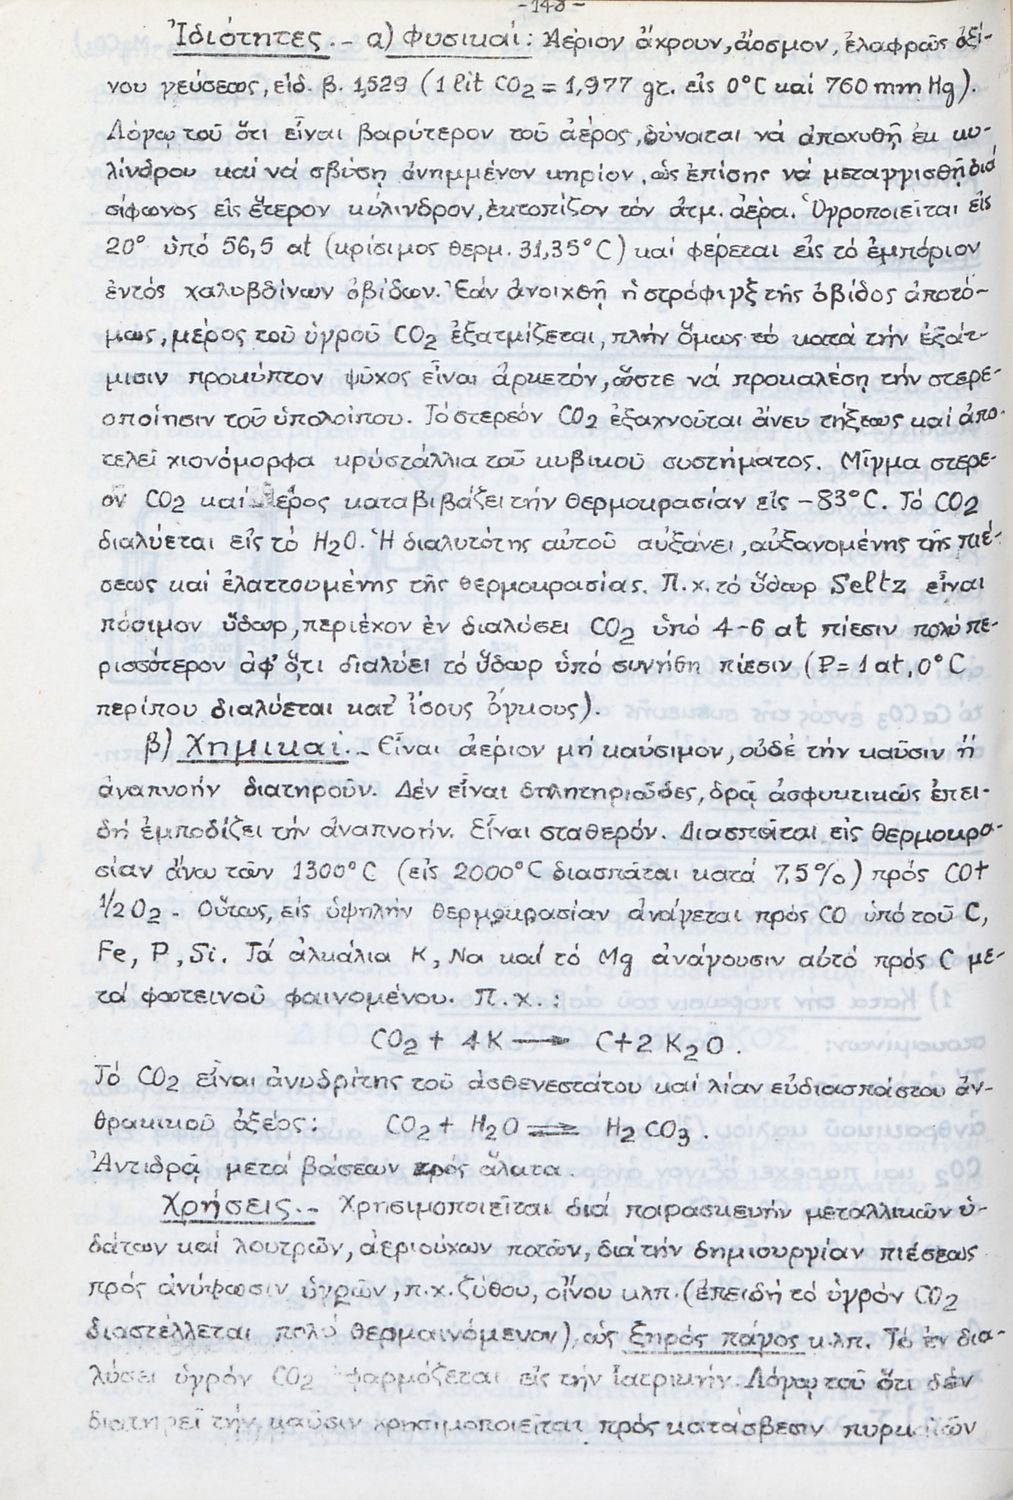 -148-
Ἰδιότητες.- α) Φυσικαί: Ἀέριον ἄχρουν, ἄοσμον, ἐλαφρῶς ὀξί-
νου γεύσεως, εἰδ. β. 1,529 (1 lit CO2 = 1,977 gr. εἰς 0°C καί 760 mm Hg).
Λόγῳ τοῦ ὅτι εἶναι βαρύτερον τοῦ ἀέρος, δύναται νά ἀποχυθῇ ἐκ κυ-
λίνδρου καί νά σβύσῃ ἀνημμένον κηρίον, ὡς ἐπίσης νά μεταγγισθῇ διά
σίφωνος εἰς ἕτερον κύλινδρον, ἐκτοπίζον τόν ἀτμ. ἀέρα. Ὑγροποιεῖται εἰς
20° ὑπό 56,5 at (κρίσιμος θερμ. 31,35°C) καί φέρεται εἰς τό ἐμπόριον
ἐντός χαλυβδίνων ὀβίδων. Ἐάν ἀνοιχθῇ ἡ στρόφιγξ τῆς ὀβίδος ἀποτό-
μως, μέρος τοῦ ὑγροῦ CO2 ἐξατμίζεται, πλήν ὅμως τό κατά τήν ἐξάτ-
μισιν προκύπτον ψῦχος εἶναι ἀρκετόν, ὥστε νά προκαλέσῃ τήν στερε-
οποίησιν τοῦ ὑπολοίπου. Τό στερεόν CO2 ἐξαχνοῦται ἄνευ τήξεως καί ἀπο-
τελεῖ χιονόμορφα κρυστάλλια τοῦ κυβικοῦ συστήματος. Μῖγμα στερε-
οῦ CO2 καί καταβιβάζει τήν θερμοκρασίαν εἰς -83°C. Τό CO2
διαλύεται εἰς τό H2O. Ἡ διαλυτότης αὐτοῦ αὐξάνει, αὐξανομένης τῆς πιέ-
σεως καί ἐλαττουμένης τῆς θερμοκρασίας. Π.χ. τό ὕδωρ Seltz εἶναι
πόσιμον ὕδωρ, περιέχον ἐν διαλύσει CO2 ὑπό 4-6 at πίεσιν πολύ πε-
ρισσότερον ἀφ' ὅτι διαλύει τό ὕδωρ ὑπό συνήθη πίεσιν (P=1 at, 0°C
περίπου διαλύεται κατ' ἴσους ὄγκους).
β) Χημικαί.- Εἶναι ἀέριον μή καύσιμον, οὐδέ τήν καῦσιν ἤ
ἀναπνοήν διατηροῦν. Δέν εἶναι δηλητηριῶδες, δρᾷ ἀσφυκτικῶς ἐπει-
δή ἐμποδίζει τήν ἀναπνοήν. Εἶναι σταθερόν. Διασπᾶται εἰς θερμοκρα-
σίαν ἄνω τῶν 1300°C (εἰς 2000°C διασπᾶται κατά 7,5%) πρός CO+
1/2 O2 - Οὕτως, εἰς ὑψηλήν θερμοκρασίαν ἀνάγεται πρός CO ὑπό τοῦ C,
Fe, P, Si. Τά ἀλκάλια K, Na καί τό Mg ἀνάγουσιν αὐτό πρός C με-
τά φωτεινοῦ φαινομένου. Π.χ.:
CO2 + 4K → C+2 K2O.
Τό CO2 εἶναι ἀνυδρίτης τοῦ ἀσθενεστάτου καί λίαν εὐδιασπάστου ἀν-
θρακικοῦ ὀξέος: CO2 + H2O ⇌ H2CO3.
Ἀντιδρᾷ μετά βάσεων πρός ἅλατα.
Χρήσεις.- Χρησιμοποιεῖται διά παρασκευήν μεταλλικῶν ὑ-
δάτων καί λουτρῶν, ἀεριούχων ποτῶν, διά τήν δημιουργίαν πιέσεως
πρός ἀνύψωσιν ὑγρῶν, π.χ. ζύθου, οἴνου κλπ. (ἐπειδή τό ὑγρόν CO2
διαστέλλεται πολύ θερμαινόμενον), ὡς ξηρός πάγος κ.λπ. Τό ἐν δια-
λύσει ὑγρόν CO2 ἐφαρμόζεται εἰς τήν Ἰατρικήν. Λόγῳ τοῦ ὅτι δέν
διατηρεῖ τήν καῦσιν χρησιμοποιεῖται πρός κατάσβεσιν πυρκαϊῶν